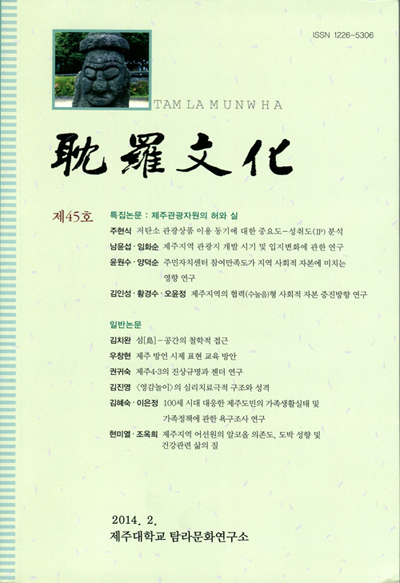 ISSN 1226-5306
TAMLAMUNWHA
耽羅文化
제45호
특집논문 : 제주관광자원의 허와 실
주현식 저탄소 관광상품 이용 동기에 대한 중요도-성취도(IP) 분석
남윤섭·임화순 제주지역 관광지 개발 시기 및 입지변화에 관한 연구
윤원수·양덕순 주민자치센터 참여만족도가 지역 사회적 자본에 미치는
영향 연구
김인성·황경수·오윤정 제주지역의 협력(수눌음)형 사회적 자본 증진방향 연구
일반논문
김치완 섬[島]-공간의 철학적 접근
우창현 제주 방언 시제 표현 교육 방안
권귀숙 제주4·3의 진상규명과 젠더 연구
김진영 〈영감놀이〉의 심리치료극적 구조와 성격
김혜숙·이은정 100세 시대 대응한 제주도민의 가족생활실태 및
가족정책에 관한 욕구조사 연구
현미열·조옥희 제주지역 어선원의 알코올 의존도, 도박 성향 및
건강관련 삶의 질
2014. 2.
제주대학교 탐라문화연구소